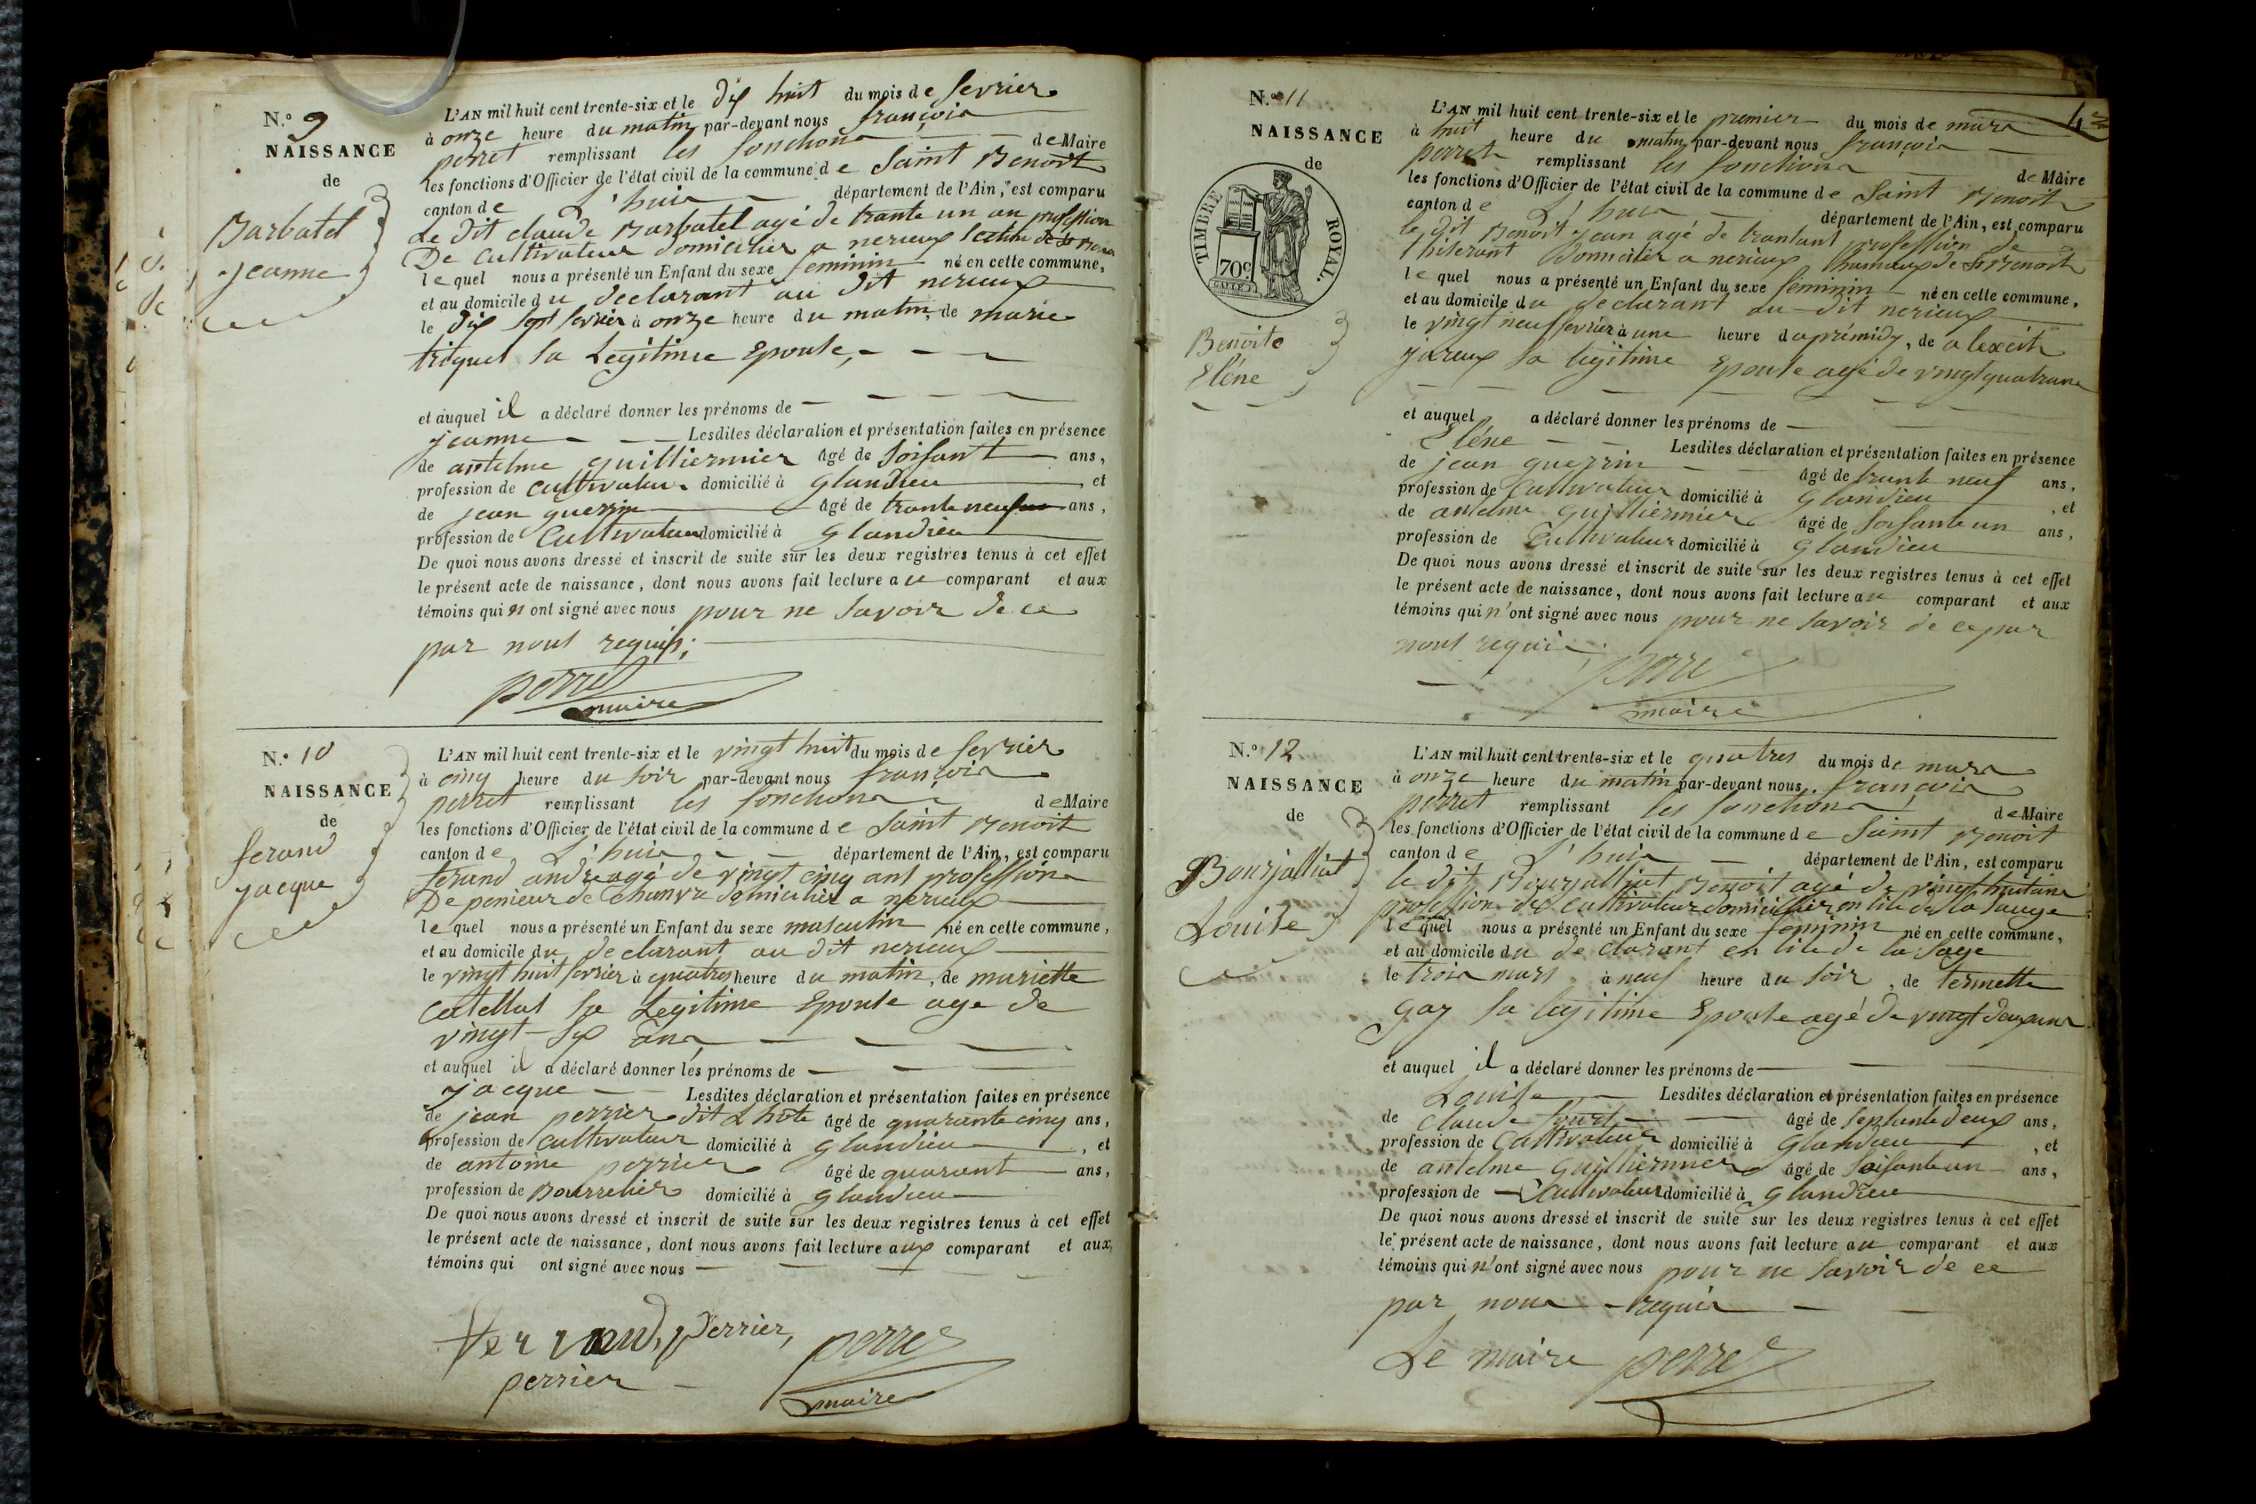 N.º 9
NAISSANCE
de
Barbatel
jeanne
L'AN mil huit cent trente-six et le dix huit du mois de fevrier
à onze heure du matin par-devant nous françois
perret remplissant les fonctions de Maire
les fonctions d'Officier de l'état civil de la commune de Saint Benoit
canton de L'huis département de l'Ain, est comparu
Le dit claude Barbatel agé de trante un an profession
De cultivateur domicilier a nerieux section de St Benoit
lequel nous a présenté un Enfant du sexe feminin né en cette commune,
et au domicile du declarant au dit nerieux
le dix sept fevrier à onze heure du matin, de marie
triquet sa Legitime Epouse,
et auquel il a déclaré donner les prénoms de
jeanne Lesdites déclaration et présentation faites en présence
de antelme guilliermier âgé de soisant ans,
profession de cultivateur domicilié à glandieu et
de jean guerrin âgé de trante neuf ans,
profession de Cultivateur domicilié à glandieu
De quoi nous avons dressé et inscrit de suite sur les deux registres tenus à cet effet
le présent acte de naissance, dont nous avons fait lecture au comparant et aux
témoins qui n ont signé avec nous pour ne savoir de ce
par nous requis;
perret
maire
N.º 10
NAISSANCE
de
ferand
jacque
L'AN mil huit cent trente-six et le vingt huit du mois de fevrier
à cinq heure du soir par-devant nous françois
perret remplissant les fonctions de Maire
les fonctions d'Officier de l'état civil de la commune de Saint Benoit
canton de L'huis département de l'Ain, est comparu
ferand andre agé de vingt cinq ans profession
De penieur de chanvre domicilier a nerieux
lequel nous a présenté un Enfant du sexe masculin né en cette commune,
et au domicile du declarant au dit nerieux
le vingt huit fevrier à quatres heure du matin, de mariette
catellas sa Legitime Epouse age de
vingt six ans
et auquel il a déclaré donner les prénoms de
jacque Lesdites déclaration et présentation faites en présence
de jean perrier dit Lhote âgé de quarante cinq ans,
profession de cultivateur domicilié à glandieu, et
de antoine perrier âgé de quarant ans,
profession de Bourrelier domicilié à glandieu
De quoi nous avons dressé et inscrit de suite sur les deux registres tenus à cet effet
le présent acte de naissance, dont nous avons fait lecture aux comparant et aux
témoins qui ont signé avec nous
perrier, perret
perrier maire
4
N.º 11
NAISSANCE
de
TIMBRE ROYAL.
70c
Benoite
Eléne
L'AN mil huit cent trente-six et le premier du mois de mars
à huit heure du matin par-devant nous françois
perret remplissant les fonctions de Maire
les fonctions d'Officier de l'état civil de la commune de Saint Benoit
canton de L'huis département de l'Ain, est comparu
le dit Benoit jean agé de trantant profession de
domicilier a nerieux hameaux de St Benoit
lequel nous a présenté un Enfant du sexe feminin né en cette commune,
et au domicile du declarant au dit nerieux
le vingt neuf fevrier à une heure daprémidy, de
sa legitime Epouse agé de vingt quatre ans
et auquel a déclaré donner les prénoms de
Eléne Lesdites déclaration et présentation faites en présence
de jean guerrin âgé de trante neuf ans,
profession de Cultivateur domicilié à glandieu, et
de antelme guilliermier âgé de soisante un ans,
profession de Cultivateur domicilié à glandieu
De quoi nous avons dressé et inscrit de suite sur les deux registres tenus à cet effet
le présent acte de naissance, dont nous avons fait lecture au comparant et aux
témoins qui n'ont signé avec nous pour ne savoir de ce par
nous requis
perret
maire
N.º 12
NAISSANCE
de
Bourjalliat
Louise
L'AN mil huit cent trente-six et le quatres du mois de mars
à onze heure du matin par-devant nous françois
perret remplissant les fonctions de Maire
les fonctions d'Officier de l'état civil de la commune de Saint Benoit
canton de L'huis département de l'Ain, est comparu
le dit Bourjalliat Benoit agé de vingt huit ans
profession de cultivateur domicilier en lile de la sauge
lequel nous a présenté un Enfant du sexe feminin né en cette commune,
et au domicile du declarant en lile de la sage
le trois mars à neuf heure du soir, de
gay sa legitime Epouse agé de vingt deux ans
et auquel il a déclaré donner les prénoms de
Louise Lesdites déclaration et présentation faites en présence
de claude âgé de septante deux ans,
profession de Cultivateur domicilié à glandieu, et
de antelme guilliermier âgé de soisante un ans,
profession de Cultivateur domicilié à glandieu
De quoi nous avons dressé et inscrit de suite sur les deux registres tenus à cet effet
le présent acte de naissance, dont nous avons fait lecture au comparant et aux
témoins qui n'ont signé avec nous pour ne savoir de ce
par nous requis
Le maire perret